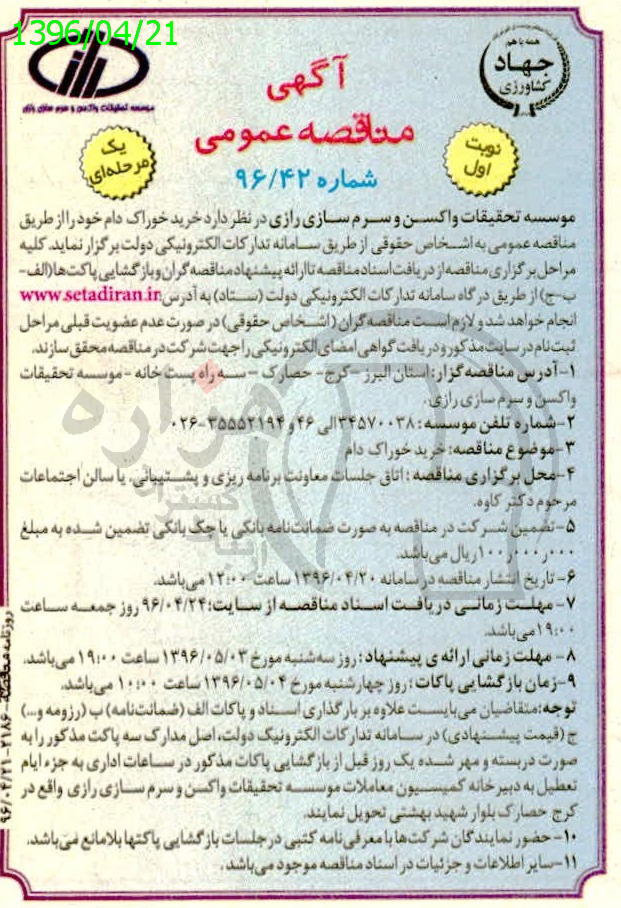 1396/04/21
همه با هم
جهاد
کشاورزی
رازی
موسسه تحقیقات واکسن و سرم سازی رازی
آگهی
مناقصه عمومی
شماره ۹۶/۴۲
نوبت
اول
یک
مرحله‌ای
موسسه تحقیقات واکسن و سرم سازی رازی در نظر دارد خرید خوراک دام خود را از طریق
مناقصه عمومی به اشخاص حقوقی از طریق سامانه تدارکات الکترونیکی دولت برگزار نماید. کلیه
مراحل برگزاری مناقصه از دریافت اسناد مناقصه تا ارائه پیشنهاد مناقصه گران و بازگشایی پاکت‌ها (الف-
ب-ج) از طریق درگاه سامانه تدارکات الکترونیکی دولت (ستاد) به آدرس www.setadiran.ir
انجام خواهد شد و لازم است مناقصه گران (اشخاص حقوقی) در صورت عدم عضویت قبلی مراحل
ثبت نام در سایت مذکور و دریافت گواهی امضای الکترونیکی را جهت شرکت در مناقصه محقق سازند.
۱-آدرس مناقصه گزار: استان البرز -کرج- حصارک - سه راه پست خانه -موسسه تحقیقات
واکسن و سرم سازی رازی.
۲-شماره تلفن موسسه: ۳۴۵۷۰۰۳۸ الی ۴۶ و ۳۵۵۵۲۱۹۴-۰۲۶
۳-موضوع مناقصه: خرید خوراک دام
۴-محل برگزاری مناقصه: اتاق جلسات معاونت برنامه ریزی و پشتیبانی، یا سالن اجتماعات
مرحوم دکتر کاوه.
۵-تضمین شرکت در مناقصه به صورت ضمانت‌نامه بانکی یا چک بانکی تضمین شده به مبلغ
۱۰۰٫۰۰۰٫۰۰۰ ریال می‌باشد.
۶- تاریخ انتشار مناقصه در سامانه ۱۳۹۶/۰۴/۲۰ ساعت ۱۲:۰۰ می‌باشد.
۷- مهلت زمانی دریافت اسناد مناقصه از سایت: ۹۶/۰۴/۲۴ روز جمعه ساعت
۱۹:۰۰ می‌باشد.
۸- مهلت زمانی ارائه ی پیشنهاد: روز سه‌شنبه مورخ ۱۳۹۶/۰۵/۰۳ ساعت ۱۹:۰۰ می‌باشد.
۹-زمان بازگشایی پاکات: روز چهارشنبه مورخ ۱۳۹۶/۰۵/۰۴ ساعت ۱۰:۰۰ می‌باشد.
توجه: متقاضیان می‌بایست علاوه بر بارگذاری اسناد و پاکات الف (ضمانت‌نامه) ب (رزومه و...)
ج (قیمت پیشنهادی) در سامانه تدارکات الکترونیک دولت، اصل مدارک سه پاکت مذکور را به
صورت دربسته و مهر شده یک روز قبل از بازگشایی پاکات مذکور در ساعات اداری به جزء ایام
تعطیل به دبیرخانه کمیسیون معاملات موسسه تحقیقات واکسن و سرم سازی رازی واقع در
کرج حصارک بلوار شهید بهشتی تحویل نمایند.
۱۰- حضور نمایندگان شرکت‌ها با معرفی نامه کتبی در جلسات بازگشایی پاکتها بلامانع می‌باشد.
۱۱-سایر اطلاعات و جزئیات در اسناد مناقصه موجود می‌باشد.
هزاره
روزنامه ۲۱۸۶-۹۶/۰۴/۲۱